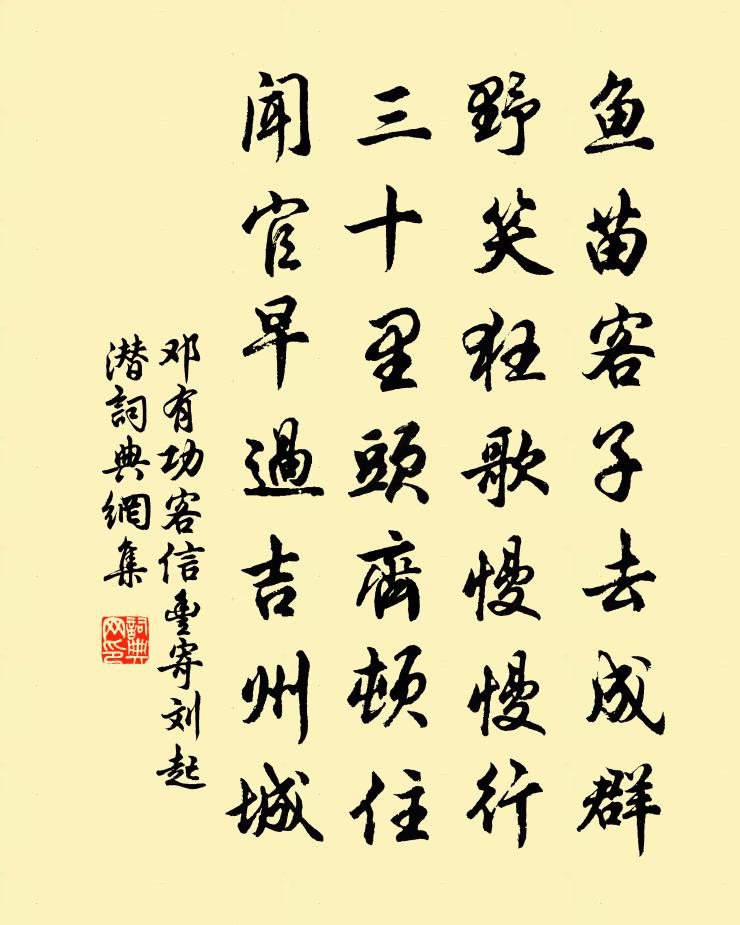 鱼苗客子去成群
野笑狂歌慢慢行
三十里頭齊頓住
闻官早過吉州城
邓有功客信豊寄刘起
潜詞典網集
詞典网印